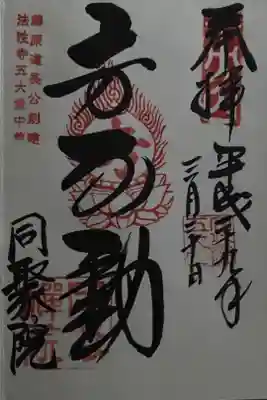 奉拝
平成二十九年
三月二十日
不動
同聚院
藤原道長公創建
法性寺五大堂中尊